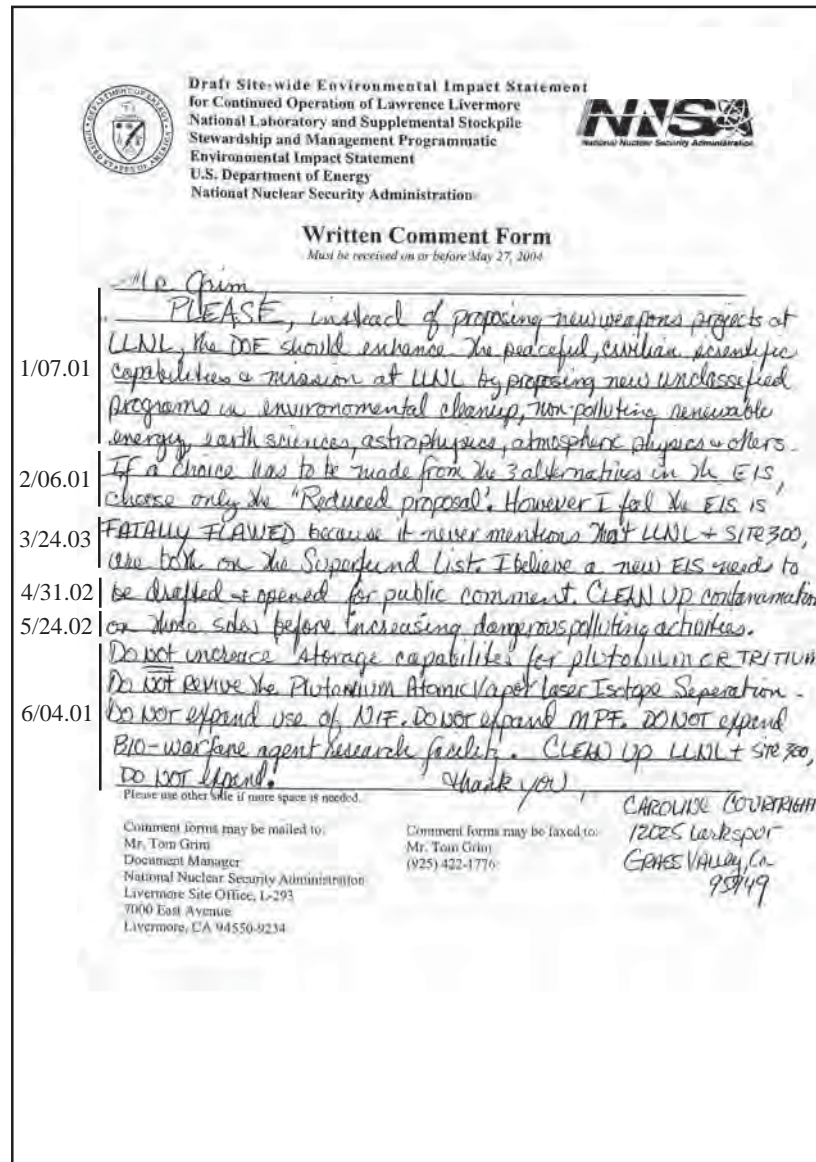 Draft Site-wide Environmental Impact Statement
for Continued Operation of Lawrence Livermore
National Laboratory and Supplemental Stockpile
Stewardship and Management Programmatic
Environmental Impact Statement
U.S. Department of Energy
National Nuclear Security Administration
NNSA
National Nuclear Security Administration
Written Comment Form
Must be received on or before May 27, 2004
Mr Grim,
PLEASE, instead of proposing new weapons projects at
LLNL, the DOE should enhance the peaceful, civilian scientific
1/07.01
capabilities & mission at LLNL by proposing new unclassified
programs in environomental cleanup, non-polluting renewable
energy, earth sciences, astrophysics, atmospheric physics & others.
2/06.01
If a choice has to be made from the 3 alternatives in the EIS,
choose only the "Reduced proposal". However I feel the EIS is
3/24.03
FATALLY FLAWED because it never mentions that LLNL + SITE 300,
are both on the Superfund List. I believe a new EIS needs to
4/31.02
be drafted & opened for public comment. CLEAN UP contanamation
5/24.02
on these sites before increasing dangerous polluting activities.
Do NOT increase storage capabilites for plutonium OR TRITIUM
Do NOT REVIVE the Plutonium Atomic Vapor Laser Isotope Seperation.
6/04.01
DO NOT expand use of NIF. DO NOT expand MPF. DO NOT expend
BIO-warfare agent Research facility. CLEAN UP LLNL + Site 300,
DO NOT expend! Thank you,
Please use other side if more space is needed.
CAROLINE COURTRIGHT
12025 Larkspur
GRASS VALLEY, Ca
95949
Comment forms may be mailed to:
Mr. Tom Grim
Document Manager
National Nuclear Security Administration
Livermore Site Office, L-293
7000 East Avenue
Livermore, CA 94550-9234
Comment forms may be faxed to:
Mr. Tom Grim
(925) 422-1776